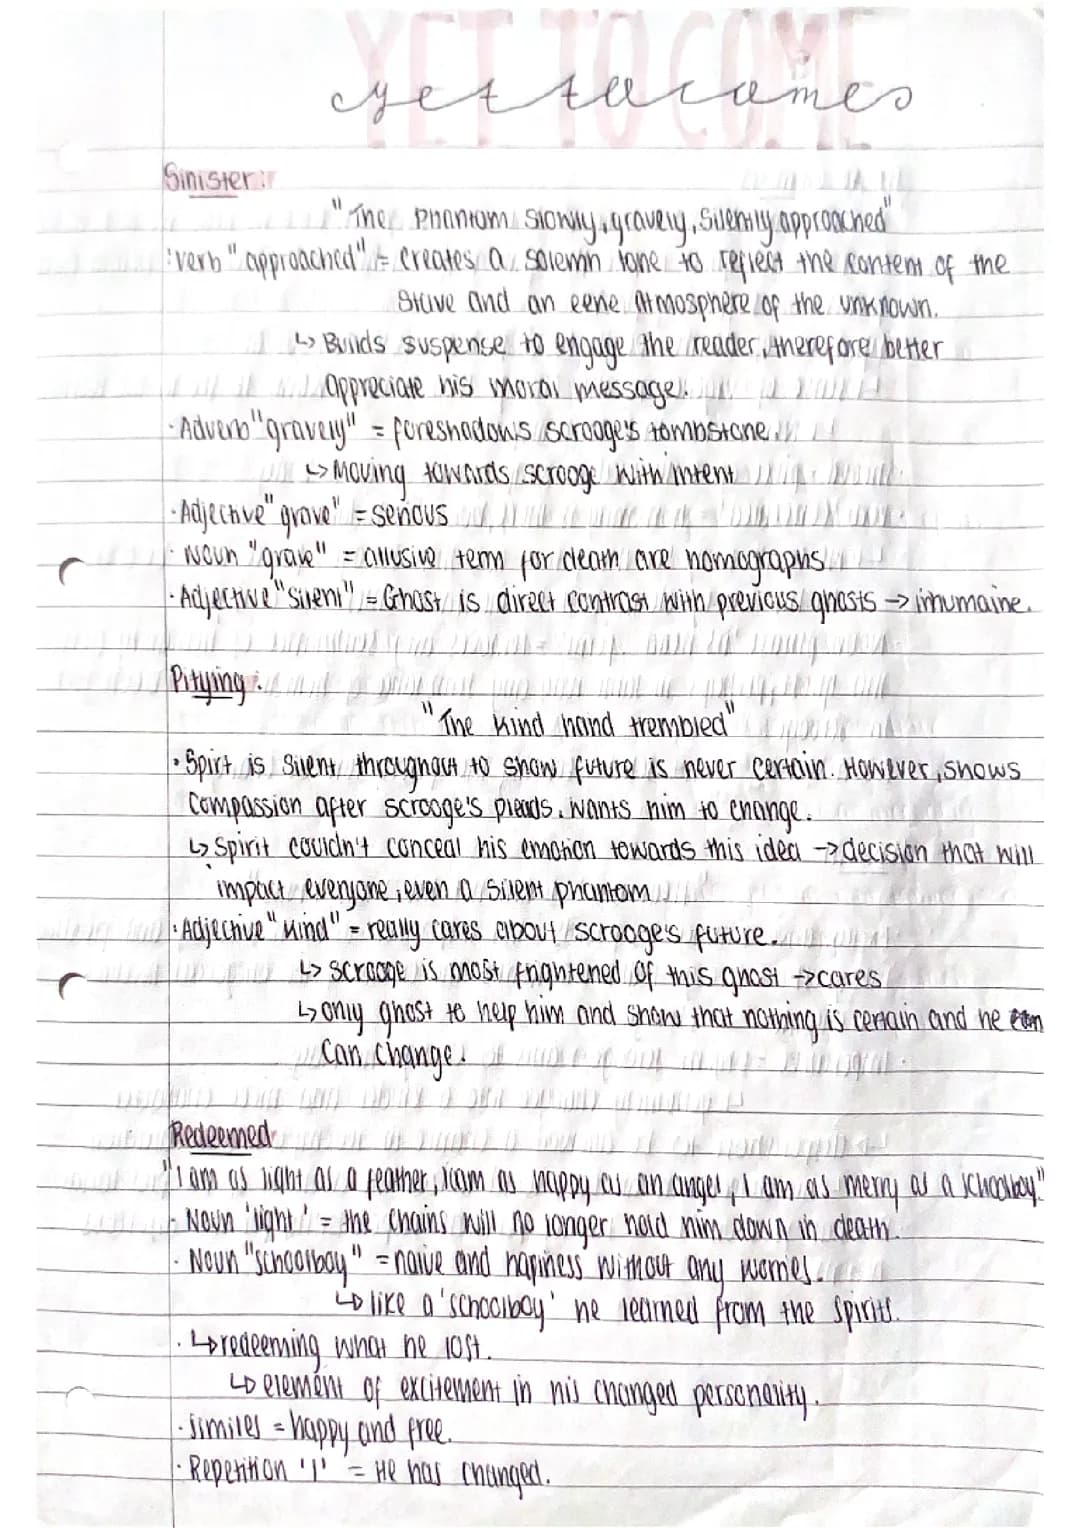 YET TO COME
yet to comes
Sinister:
"The Phantom slowly, gravely, silently approached"
:verb "approached" = creates a solemn tone to reflect the content of the
Stave and an eerie atmosphere of the unknown.
↳ Builds suspense to engage the reader, therefore better
appreciate his moral message.
·Adverb "gravely" = foreshadows scrooge's tombstone.
↳ Moving towards scrooge with intent
·Adjective "grave" = serious
·Noun "grave" = allusive term for death are homographs.
·Adjective "silent" = Ghost is direct contrast with previous ghosts → inhumaine.
Pitying:
"The kind hand trembled"
·Spirt is silent throughout to show future is never certain. However, shows
compassion after scrooge's pleads. Wants him to change.
↳ Spirit couldn't conceal his emotion towards this idea → decision that will
impact everyone, even a silent phantom
·Adjective "kind" = really cares about scrooge's future.
↳ scrooge is most frightened of this ghost → cares
↳ only ghost to help him and show that nothing is certain and he
can change.
Redeemed
"I am as light as a feather, I am as happy as an angel, I am as merry as a schoolboy."
·Noun 'light' = the chains will no longer hold him down in death.
·Noun "schoolboy" = naive and hapiness without any worries.
↳ like a 'schoolboy' he learned from the spirits.
·↳ redeeming what he lost.
↳ element of excitement in his changed personality.
·similes = happy and free.
·Repetition 'I' = He has changed.